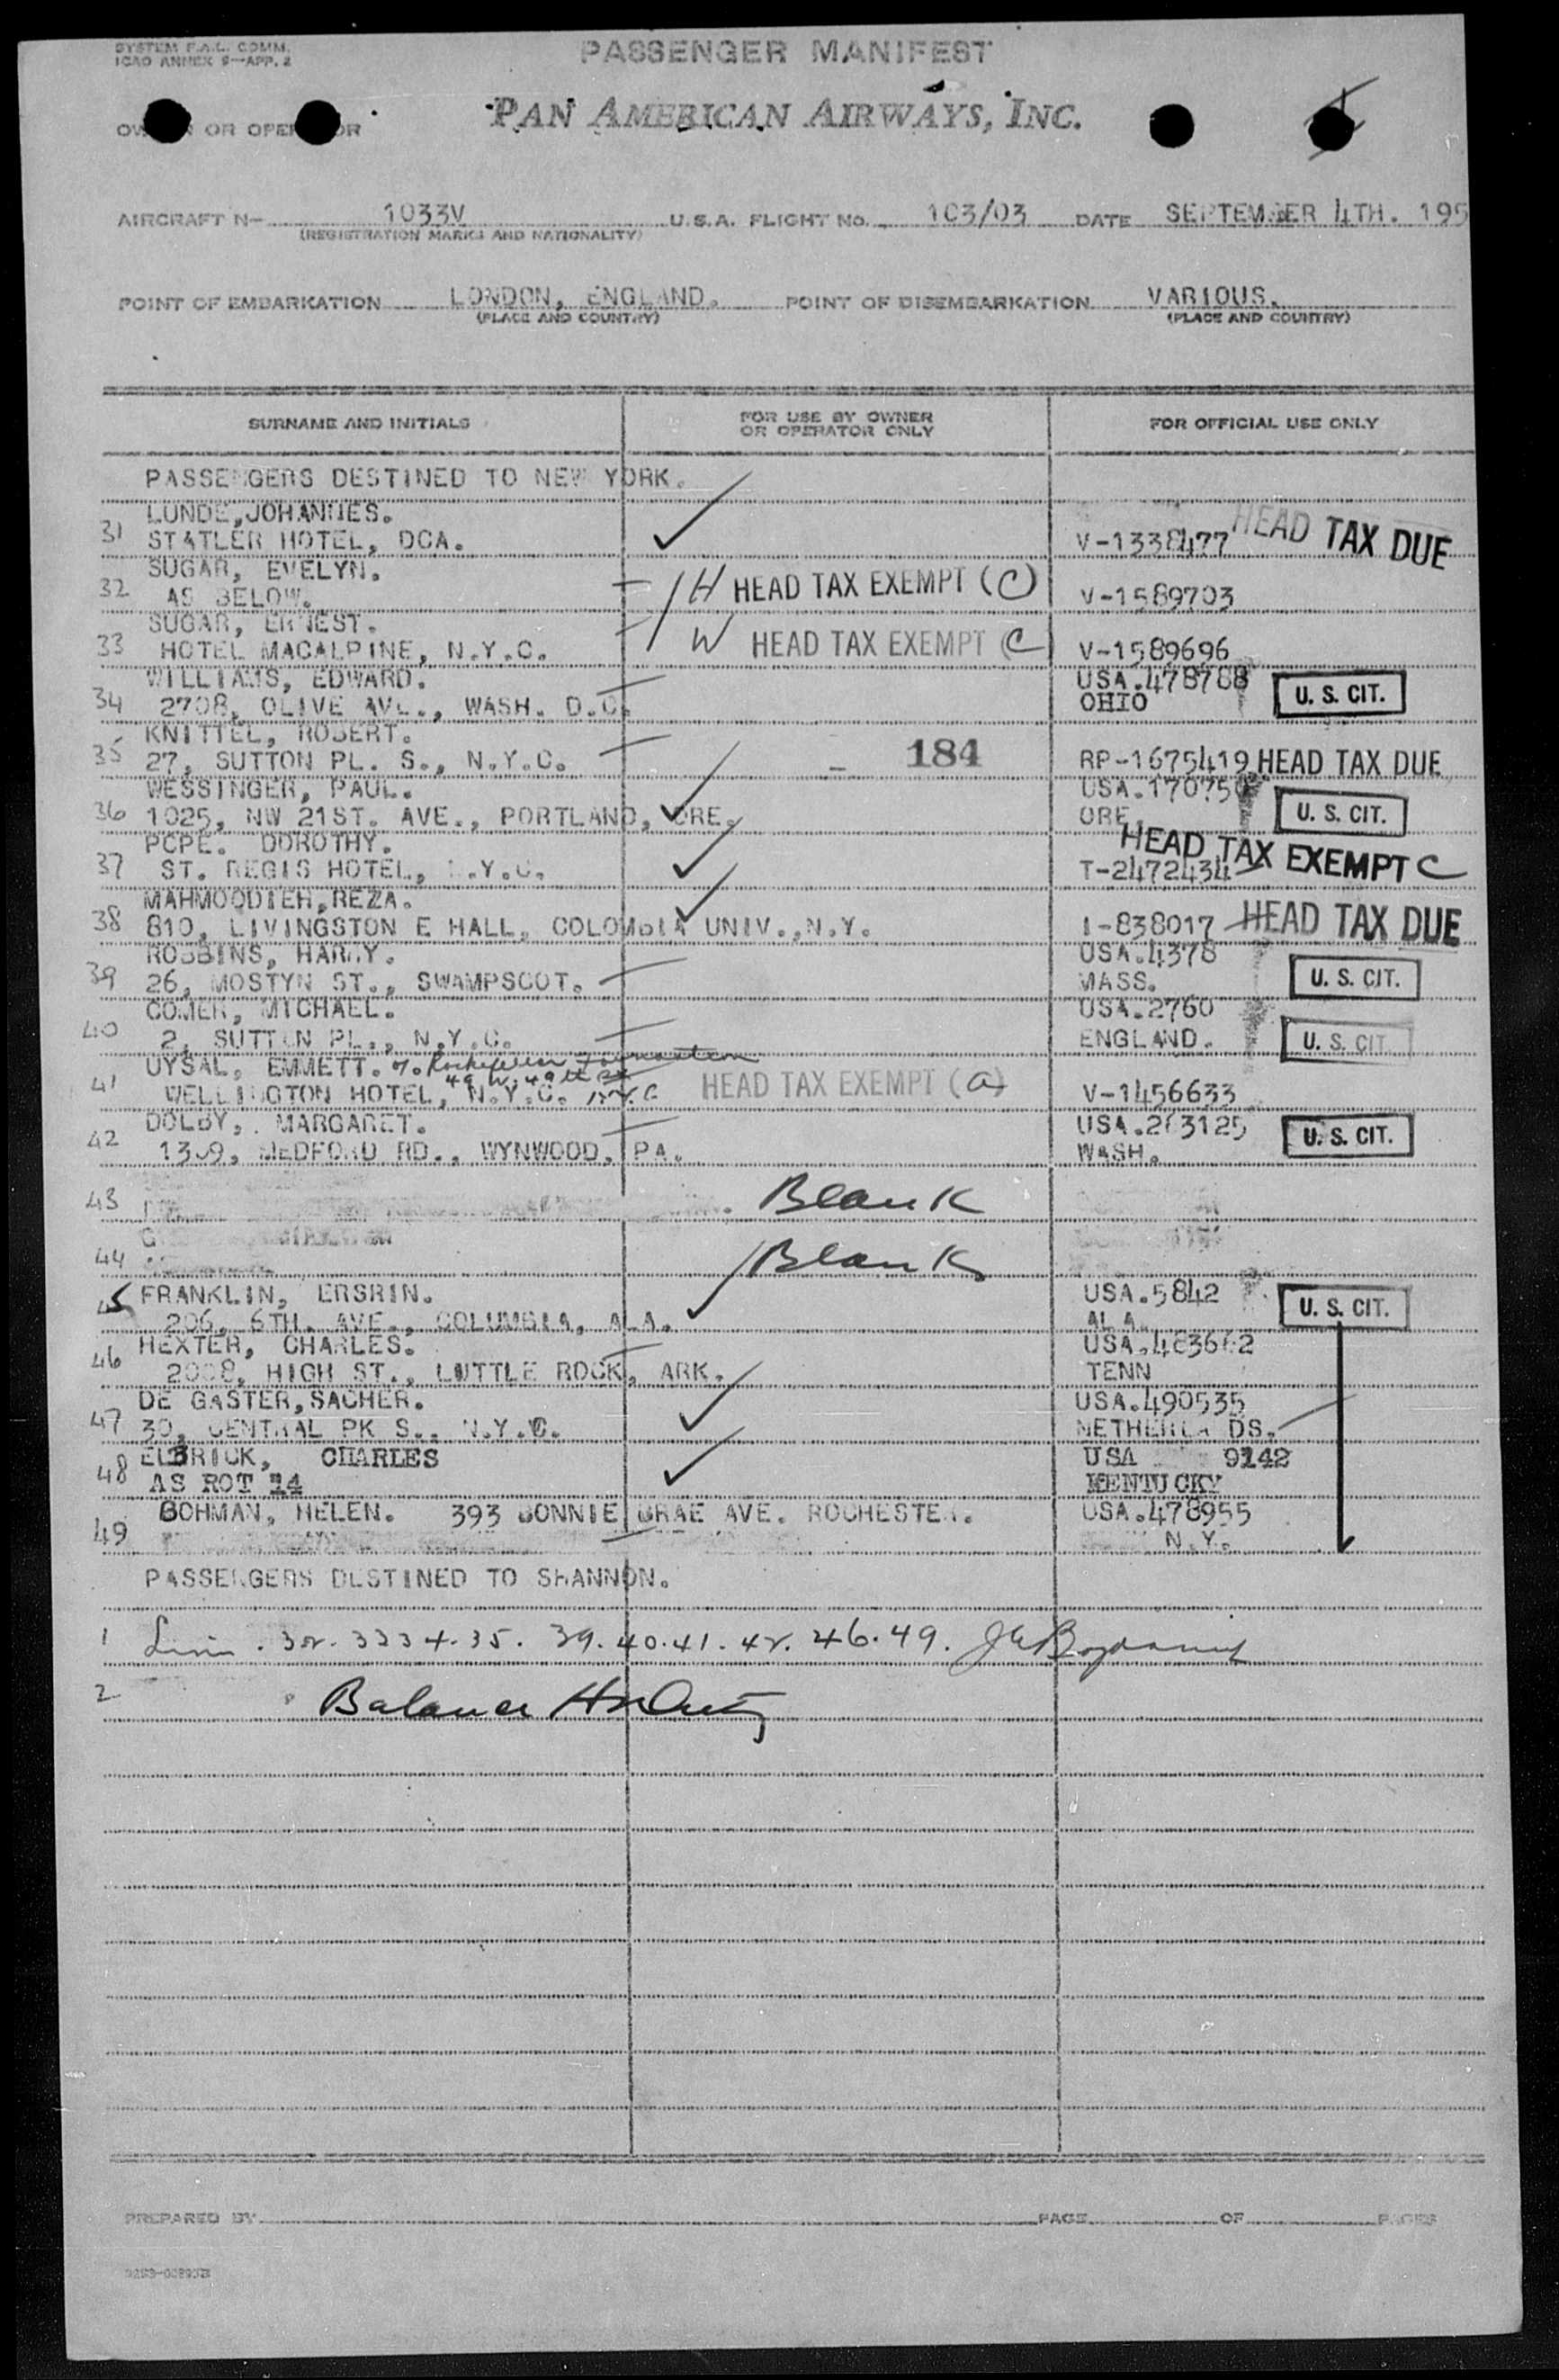 SYSTEM F.A.L. COMM.
ICAO ANNEX 9—APP. 2
PASSENGER MANIFEST
OR OPER
PAN AMERICAN AIRWAYS, INC.
AIRCRAFT N- 1033V U.S.A. FLIGHT NO. 103/03 DATE SEPTEMBER 4TH. 195
(REGISTRATION MARKS AND NATIONALITY)
POINT OF EMBARKATION LONDON, ENGLAND. POINT OF DISEMBARKATION VARIOUS.
(PLACE AND COUNTRY) (PLACE AND COUNTRY)
SURNAME AND INITIALS FOR USE BY OWNER OR OPERATOR ONLY FOR OFFICIAL USE ONLY
PASSENGERS DESTINED TO NEW YORK.
LUNDE, JOHANNES.
31 STATLER HOTEL, DCA. V-1338477 HEAD TAX DUE
SUGAR, EVELYN.
32 AS BELOW. H HEAD TAX EXEMPT (C) V-1589703
SUGAR, ERNEST.
33 HOTEL MACALPINE, N.Y.C. W HEAD TAX EXEMPT C V-1589696
WILLIAMS, EDWARD. USA.478788
34 2708, OLIVE AVE., WASH. D.C. OHIO U. S. CIT.
KNITTEL, ROBERT.
35 27, SUTTON PL. S., N.Y.C. 184 RP-1675419 HEAD TAX DUE
WESSINGER, PAUL. USA.170750
36 1025, NW 21ST. AVE., PORTLAND, ORE. ORE. U. S. CIT.
POPE. DOROTHY. HEAD TAX EXEMPT C
37 ST. REGIS HOTEL, N.Y.C. T-2472434
MAHMOODIEH, REZA.
38 810, LIVINGSTON E HALL, COLOMBIA UNIV., N.Y. I-838017 HEAD TAX DUE
ROBBINS, HARRY. USA.4378
39 26, MOSTYN ST., SWAMPSCOT. MASS. U. S. CIT.
COMER, MICHAEL. USA.2760
40 2, SUTTON PL., N.Y.C. ENGLAND. U. S. CIT.
UYSAL, EMMETT. % Rockefeller Foundation
49 W. 49th St N.Y.C
41 WELLINGTON HOTEL, N.Y.C. HEAD TAX EXEMPT (a) V-1456633
DOLBY, MARGARET. USA.263125
42 1309, MEDFORD RD., WYNWOOD, PA. WASH. U. S. CIT.
43 Blank
44 Blank
45 FRANKLIN, ERSRIN. USA.5842 U. S. CIT.
206, 6TH. AVE., COLUMBIA, ALA. ALA.
HEXTER, CHARLES. USA.463662
46 2008, HIGH ST., LITTLE ROCK, ARK. TENN
DE GASTER, SACHER. USA.490535
47 30, CENTRAL PK S., N.Y.C. NETHERLANDS.
ELBRICK, CHARLES USA 9142
48 AS ROT 14 KENTUCKY
BOHMAN, HELEN. 393 BONNIE BRAE AVE. ROCHESTER. USA.478955
49 N.Y.
PASSENGERS DESTINED TO SHANNON.
1 32. 33 34. 35. 39. 40. 41. 42. 46. 49.
2 Balance
PREPARED BY PAGE OF PAGES